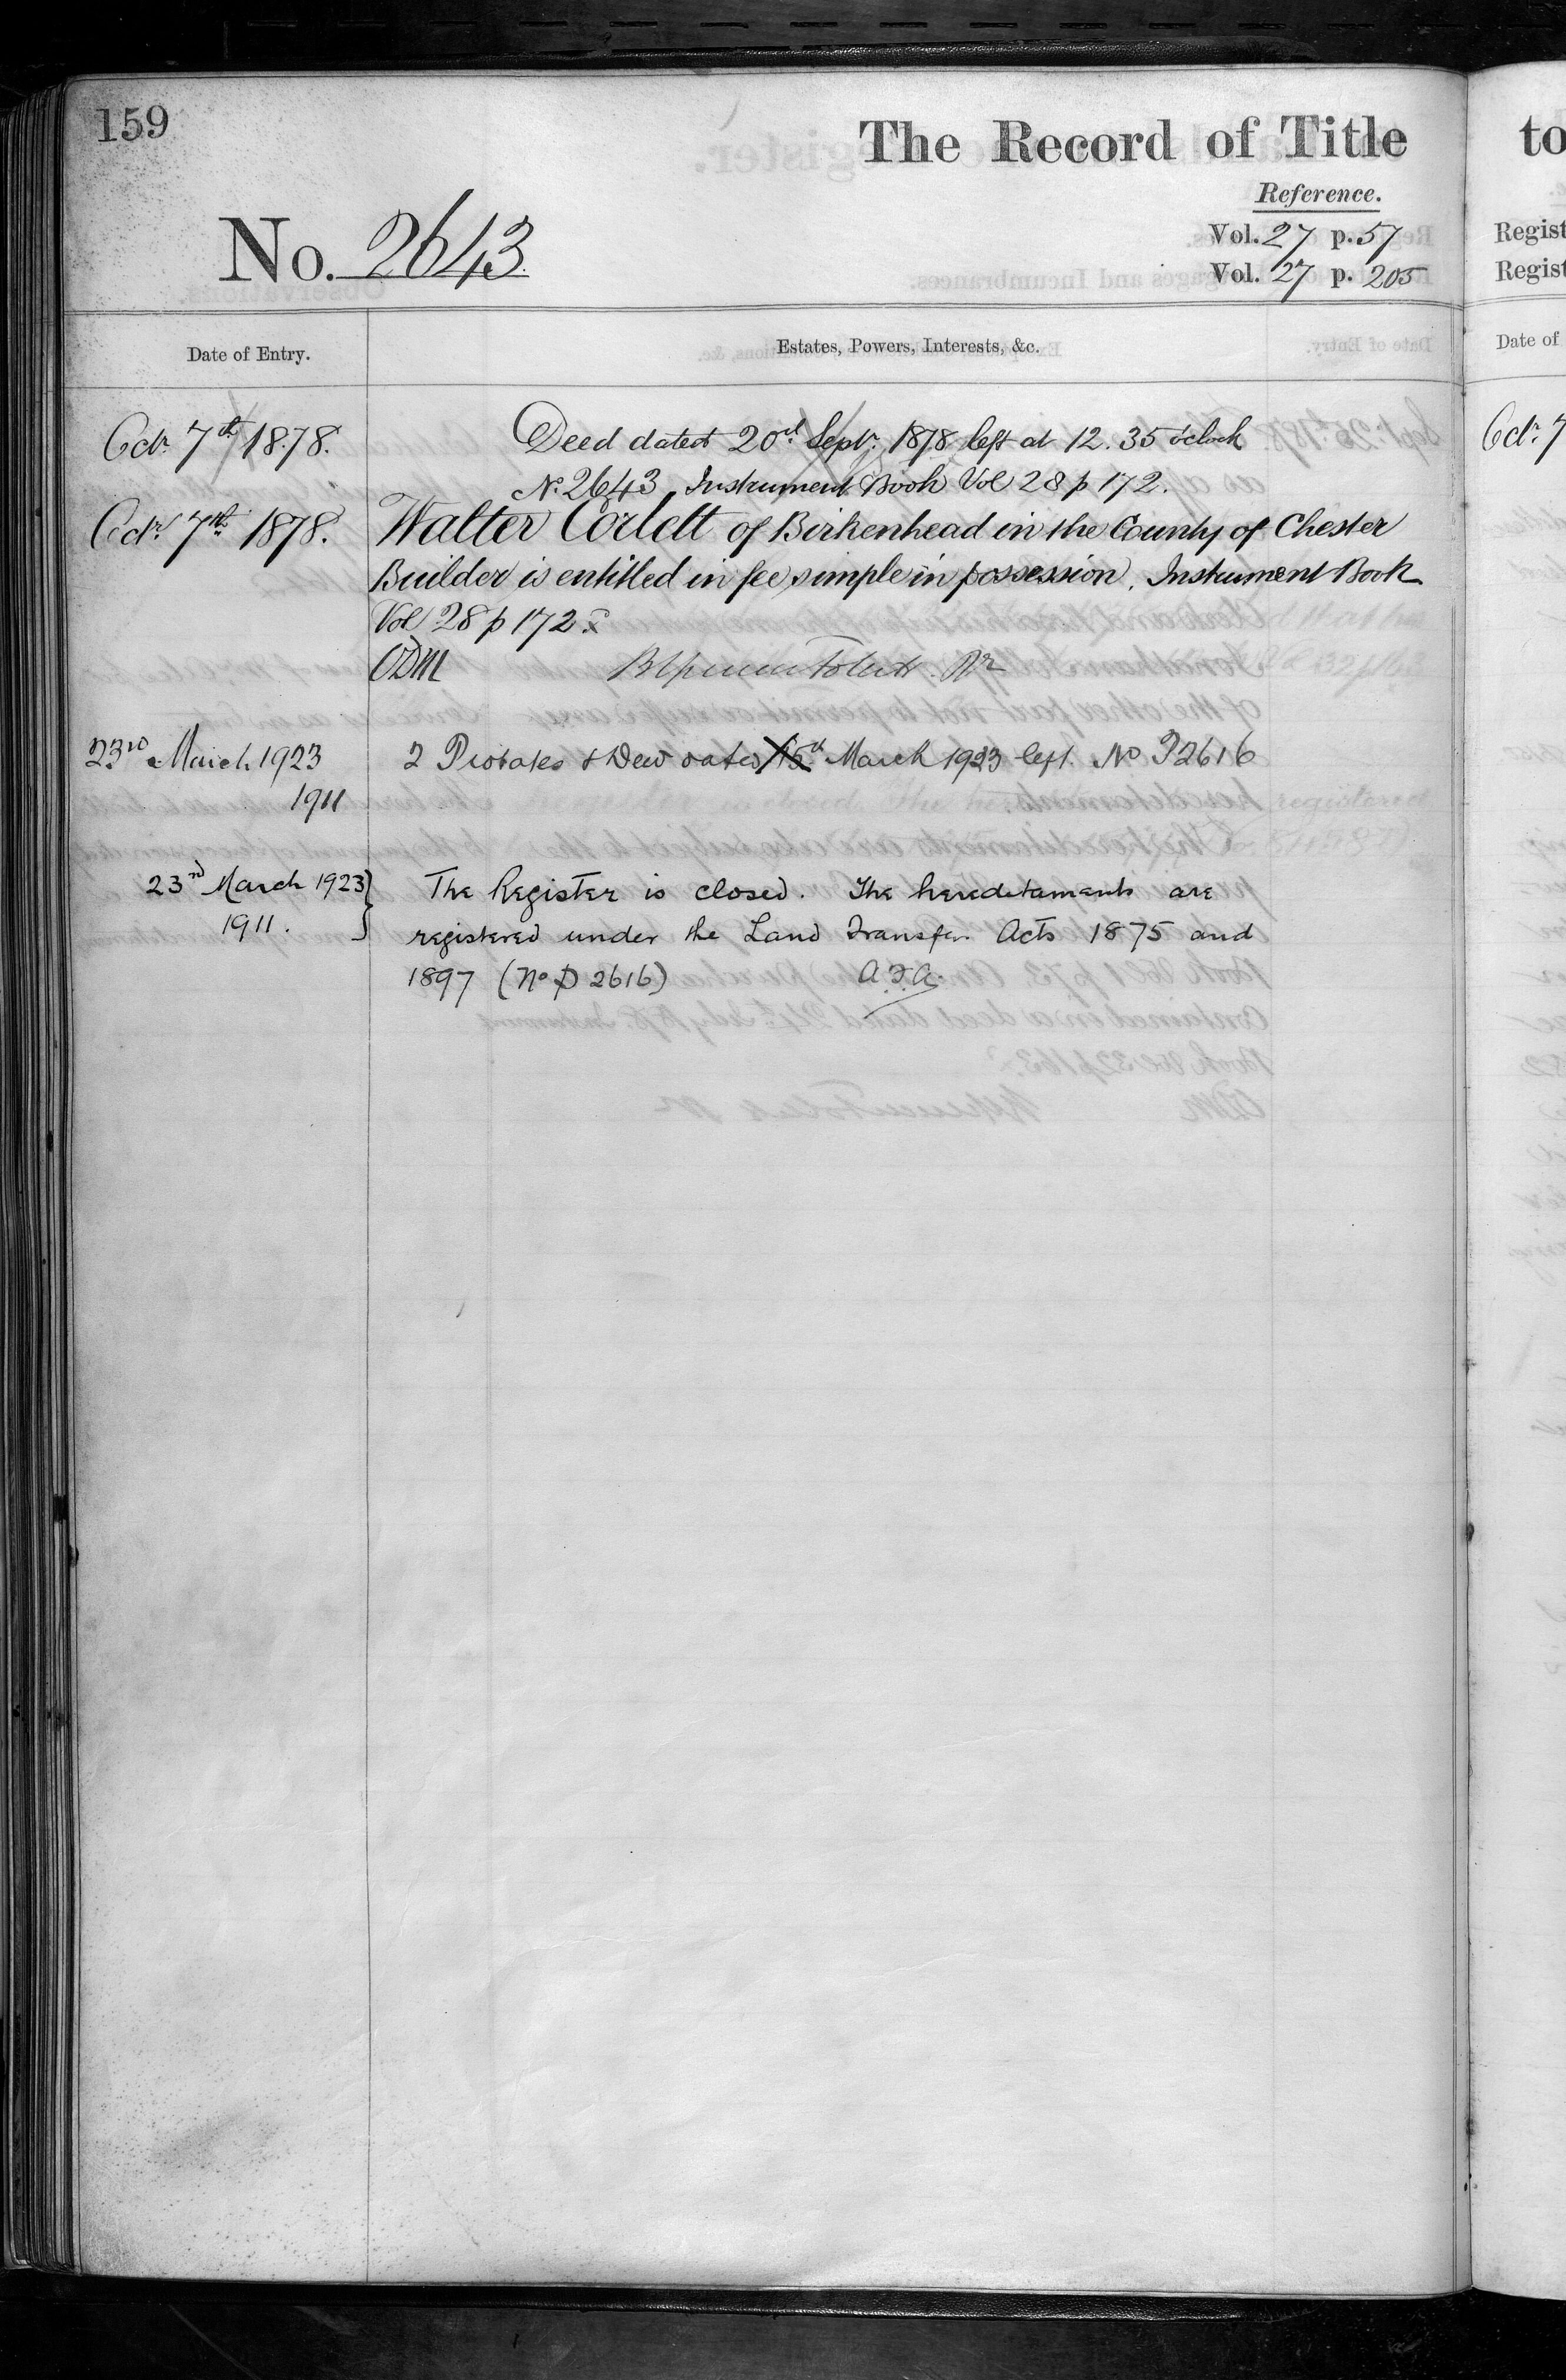 159
The Record of Title
to
Reference.
No. 2643.
Vol. 27 p. 57
Regist
Vol. 27 p. 205
Regist
Date of Entry.
Estates, Powers, Interests, &c.
Date of
Octr. 7th 1878.
Deed dated 20th Septr. 1878 left at 12.35 o'clock
Octr. 7
No. 2643 Instrument Book Vol 28 p 172.
Octr. 7th 1878.
Walter Corlett of Birkenhead in the County of Chester
Builder is entitled in fee simple in possession. Instrument Book
Vol 28 p 172.
ODM
23rd March 1923
2 Probates & Deed dated 15th March 1923 left. No P2616
1911
23rd March 1923
The Register is closed. The hereditaments are
1911.
registered under the Land Transfer Acts 1875 and
1897 (No P 2616) A.F.A.